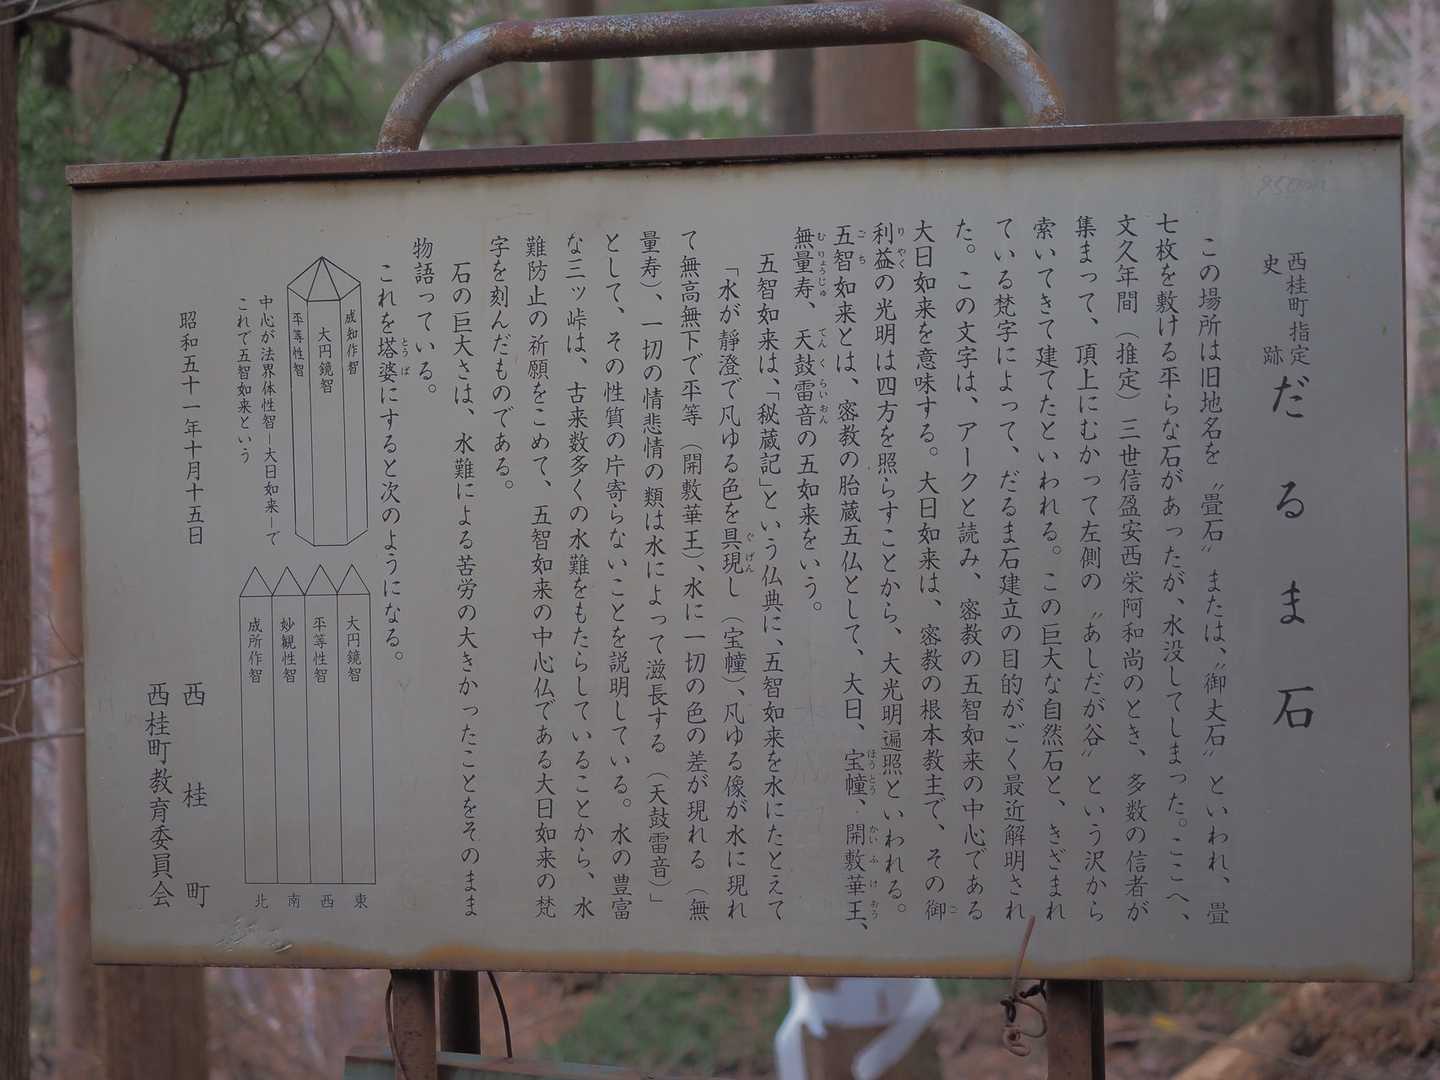 西桂町指定
史跡
だるま石
この場所は旧地名を〝畳石〟または、〝御丈石〟といわれ、畳
七枚を敷ける平らな石があったが、水没してしまった。ここへ、
文久年間（推定）三世信盈安西栄阿和尚のとき、多数の信者が
集まって、頂上にむかって左側の〝あしだが谷〟という沢から
索いてきて建てたといわれる。この巨大な自然石と、きざまれ
ている梵字によって、だるま石建立の目的がごく最近解明され
た。この文字は、アークと読み、密教の五智如来の中心である
大日如来を意味する。大日如来は、密教の根本教主で、その御
利益の光明は四方を照らすことから、大光明遍照といわれる。
五智如来とは、密教の胎蔵五仏として、大日、宝幢、開敷華王、
無量寿、天鼓雷音の五如来をいう。
五智如来は、「秘蔵記」という仏典に、五智如来を水にたとえて
「水が靜澄で凡ゆる色を具現し（宝幢）、凡ゆる像が水に現れ
て無高無下で平等（開敷華王）、水に一切の色の差が現れる（無
量寿）、一切の情悲情の類は水によって滋長する（天鼓雷音）」
として、その性質の片寄らないことを説明している。水の豊富
な三ッ峠は、古来数多くの水難をもたらしていることから、水
難防止の祈願をこめて、五智如来の中心仏である大日如来の梵
字を刻んだものである。
石の巨大さは、水難による苦労の大きかったことをそのまま
物語っている。
これを塔婆にすると次のようになる。
成知作智
大円鏡智
平等性智
中心が法界体性智―大日如来―で
これで五智如来という
大円鏡智
平等性智
妙観性智
成所作智
東
西
南
北
昭和五十一年十月十五日
西桂町
西桂町教育委員会